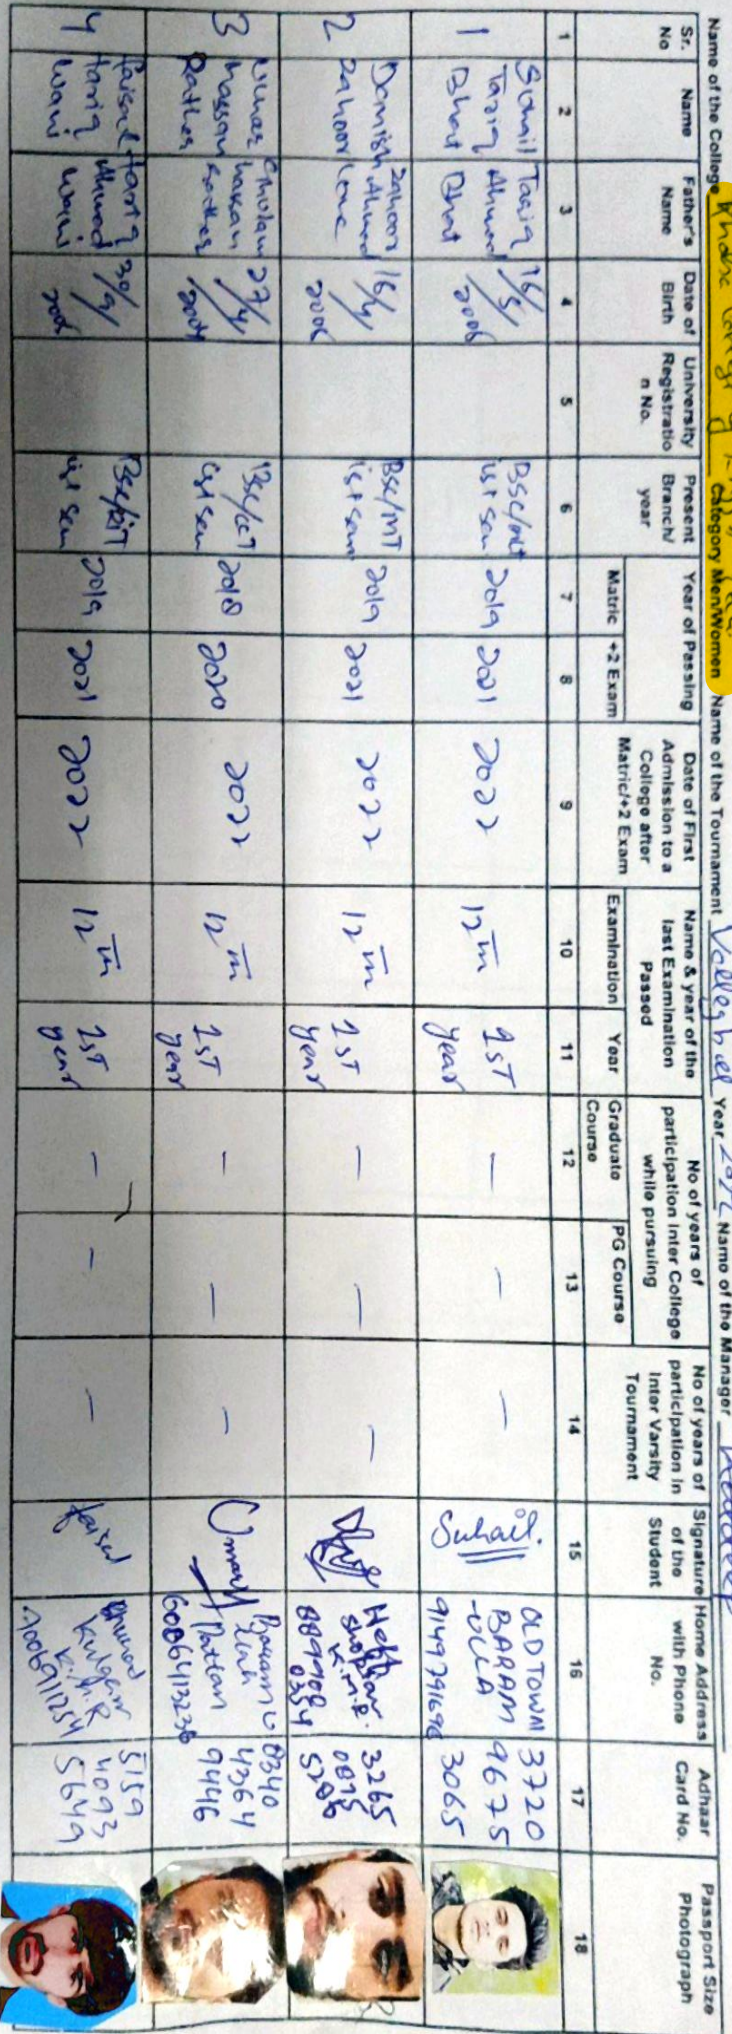 Name of the College Khalsa College Category Men/Women Name of the Tournament Volleyball Year Name of the Manager
Sr. No
Name
Father's Name
Date of Birth
University Registration No.
Present Branch/ year
Year of Passing
Matric
+2 Exam
Date of First Admission to a College after Matric/+2 Exam
Name & year of the last Examination Passed
Examination
Year
No of years of participation Inter College while pursuing
Graduate Course
PG Course
No of years of participation in Inter Varsity Tournament
Signature of the Student
Home Address with Phone No.
Adhaar Card No.
Passport Size Photograph
1 2 3 4 5 6 7 8 9 10 11 12 13 14 15 16 17 18
1
Suhail Tariq Bhat
Tariq Ahmad Bhat
16/5/2006
Bsc/mlt
ist sem
2019
2021
2022
12th
1st year
—
—
—
Suhail.
OLD TOWN
BARAM
-ULLA
9149791696
3720
9675
3065
2
Danish Zahoor
Zahoor Ahmad Lone
16/4/2006
Bsc/MT
ist sem
2019
2021
2022
12th
1st year
—
—
—
3265
3
Umar Hassan Rather
Ghulam Hassan Rather
27/4/
Bsc/CT
ist sem
2018
2020
2022
12th
1st year
—
—
—
Umar
Pattan
6006413236
8340
4364
9446
4
Faisal Tariq Wani
Tariq Ahmad Wani
30/9/
ist sem
2019
2021
2022
12th
1st year
—
—
—
faisal
Kulgam
7006911254
5159
4093
5649